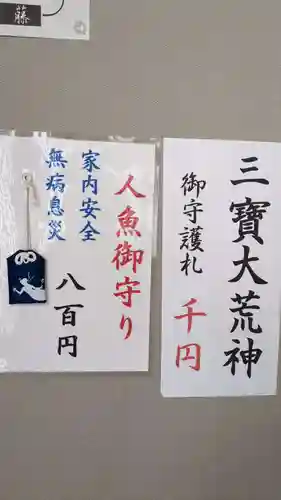 藤
三寶大荒神
御守護札 千円
人魚御守り
家内安全
無病息災
八百円